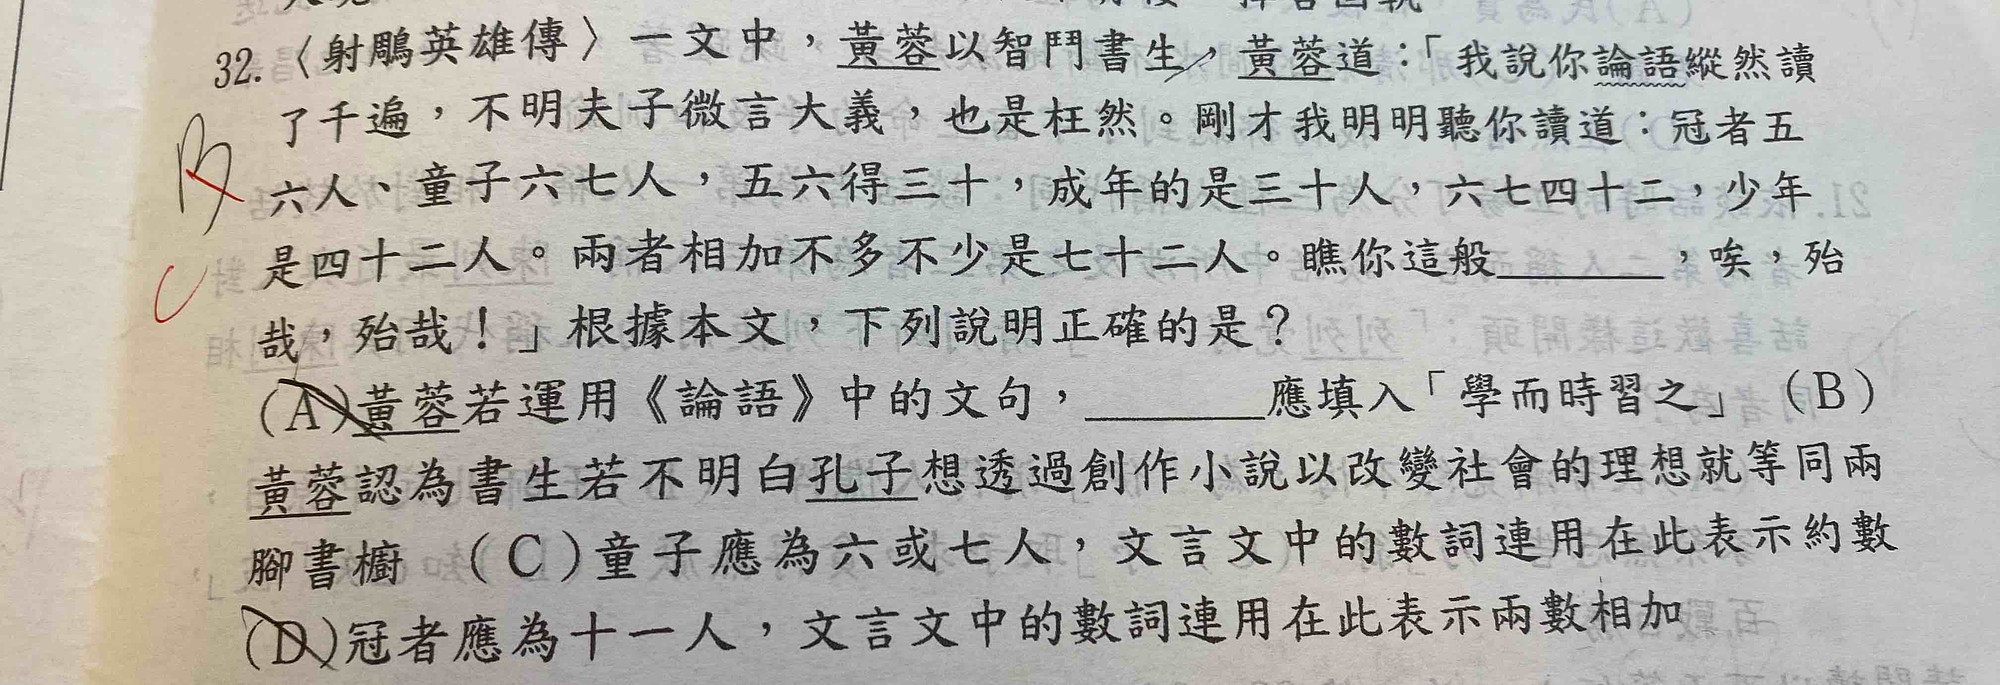 32.〈射鵰英雄傳〉一文中，黃蓉以智鬥書生，黃蓉道：「我說你論語縱然讀
了千遍，不明夫子微言大義，也是枉然。剛才我明明聽你讀道：冠者五
六人、童子六七人，五六得三十，成年的是三十人，六七四十二，少年
是四十二人。兩者相加不多不少是七十二人。瞧你這般______，唉，殆
哉，殆哉！」根據本文，下列說明正確的是？
(A)黃蓉若運用《論語》中的文句，______應填入「學而時習之」 (B)
黃蓉認為書生若不明白孔子想透過創作小說以改變社會的理想就等同兩
腳書櫥 (C)童子應為六或七人，文言文中的數詞連用在此表示約數
(D)冠者應為十一人，文言文中的數詞連用在此表示兩數相加
B
C